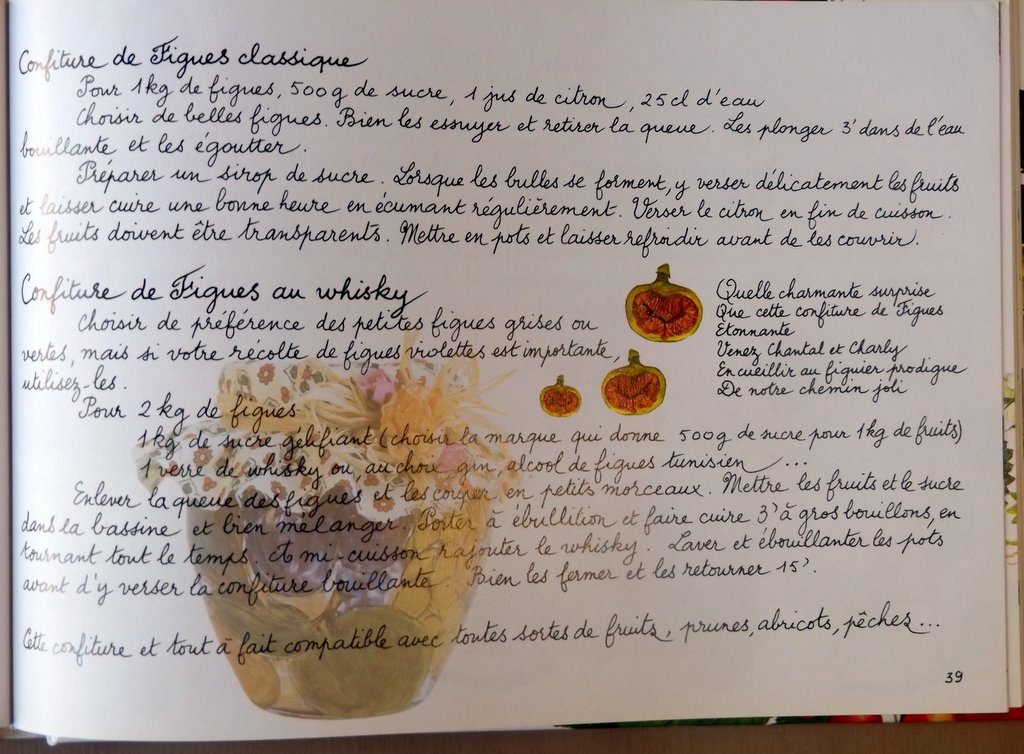 Confiture de Figues classique
Pour 1kg de figues, 500g de sucre, 1 jus de citron, 25 cl d'eau
Choisir de belles figues. Bien les essuyer et retirer la queue. Les plonger 3' dans de l'eau
bouillante et les égoutter.
Préparer un sirop de sucre. Lorsque les bulles se forment, y verser délicatement les fruits
et laisser cuire une bonne heure en écumant régulièrement. Verser le citron en fin de cuisson.
Les fruits doivent être transparents. Mettre en pots et laisser refroidir avant de les couvrir.
Confiture de Figues au whisky
Choisir de préférence des petites figues grises ou
vertes, mais si votre récolte de figues violettes est importante,
utilisez-les.
Quelle charmante surprise
Que cette confiture de Figues
Etonnante
Venez Chantal et Charly
En cueillir au figuier prodigue
De notre chemin joli
Pour 2 kg de figues
1kg de sucre gélifiant (choisir la marque qui donne 500g de sucre pour 1kg de fruits)
1 verre de whisky ou, au choix, gin, alcool de figues tunisien ...
Enlever la queue des figues et les couper en petits morceaux. Mettre les fruits et le sucre
dans la bassine et bien mélanger. Porter à ébullition et faire cuire 3' à gros bouillons, en
tournant tout le temps. A mi-cuisson rajouter le whisky. Laver et ébouillanter les pots
avant d'y verser la confiture bouillante. Bien les fermer et les retourner 15'.
Cette confiture et tout à fait compatible avec toutes sortes de fruits, prunes, abricots, pêches...
39